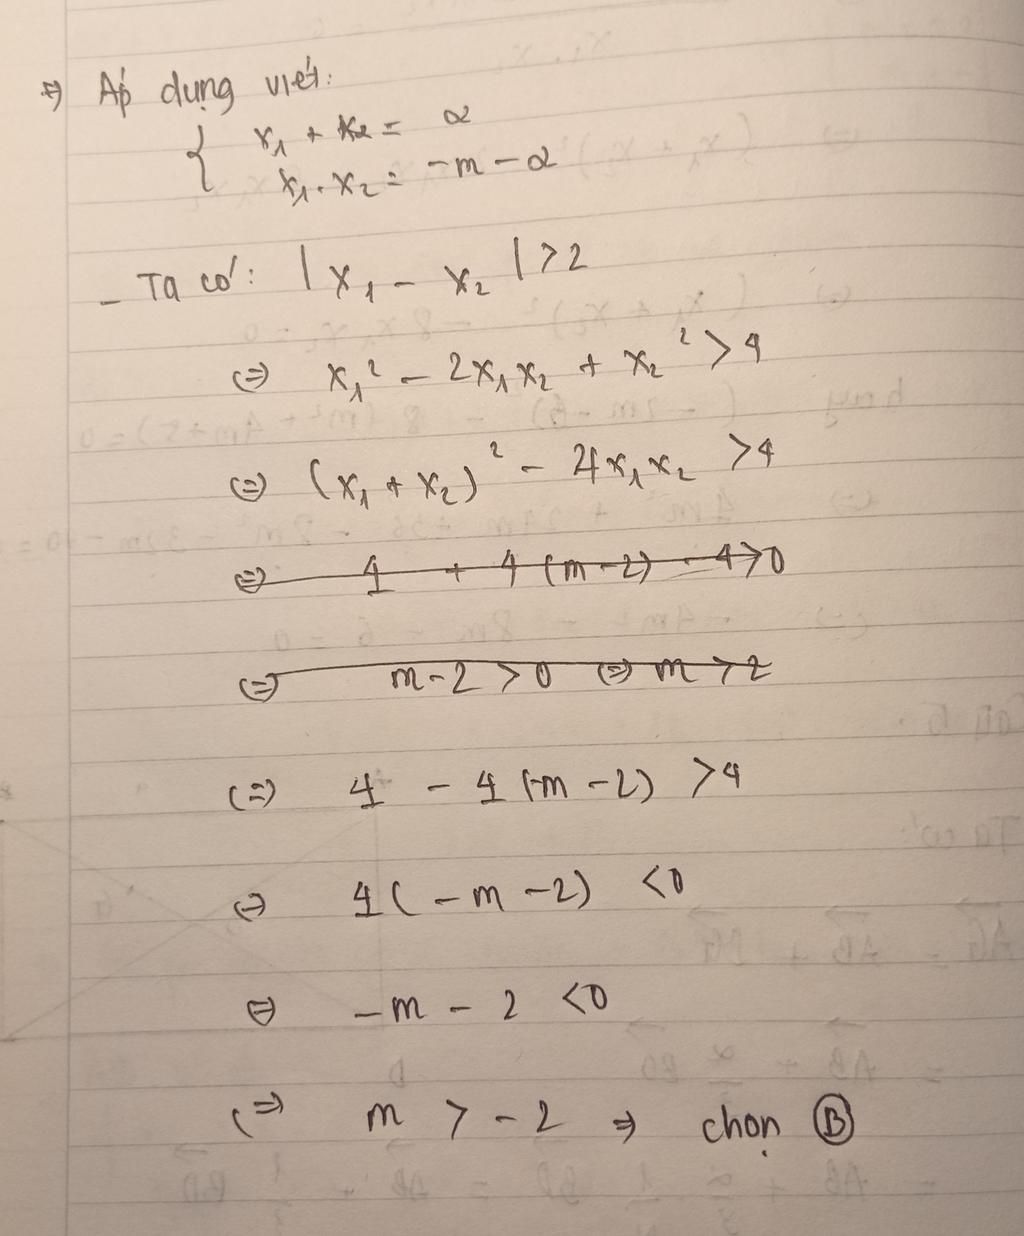 => Áp dụng viét:
{ x₁ + x₂ = 2
x₁ . x₂ = -m - 2
- Ta có: | x₁ - x₂ | > 2
<=> x₁² - 2x₁x₂ + x₂² > 4
<=> (x₁ + x₂)² - 4x₁x₂ > 4
<=> 4 + 4 (m-2) - 4 > 0
<=> m-2 > 0 <=> m > 2
<=> 4 - 4 (-m - 2) > 4
<=> 4 ( -m - 2) < 0
<=> -m - 2 < 0
<=> m > -2 => chọn B